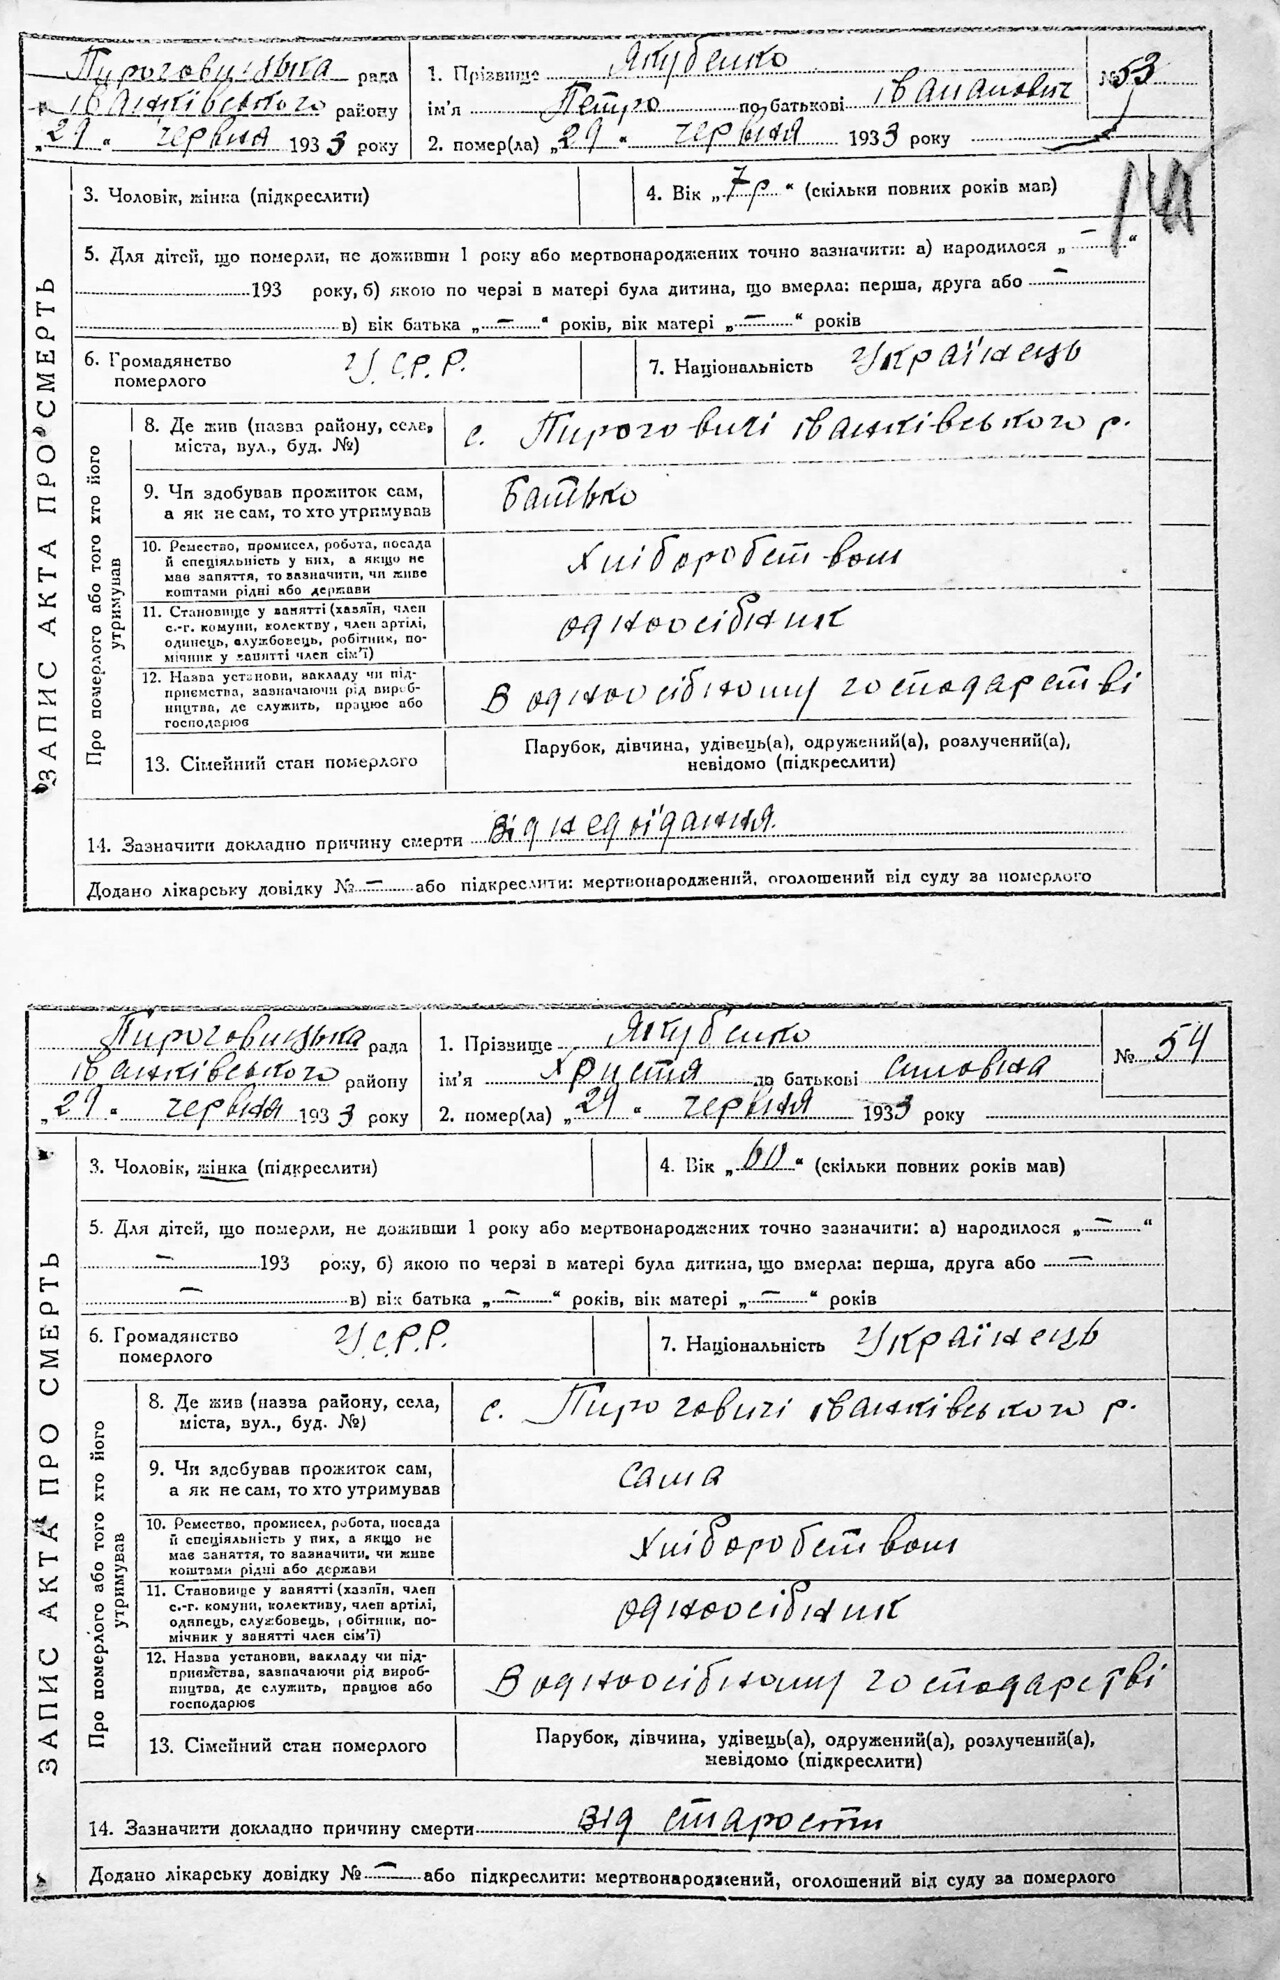 Пироговицька рада
Іванківського району
„29“ червня 1933 року
1. Прізвище Якубенко
ім'я Петро по батькові Іванович
2. помер(ла) „29“ червня 1933 року
№ 53
ЗАПИС АКТА ПРО СМЕРТЬ
3. Чоловік, жінка (підкреслити)
4. Вік „7 р“ (скільки повних років мав)
5. Для дітей, що померли, не доживши 1 року або мертвонароджених точно зазначити: а) народилося „—“
193 року, б) якою по черзі в матері була дитина, що вмерла: перша, друга або —
в) вік батька „—“ років, вік матері „—“ років
6. Громадянство
померлого
У.С.Р.Р.
7. Національність Українець
Про померлого або того хто його
утримував
8. Де жив (назва району, села,
міста, вул., буд. №)
с. Пироговичі Іванківського р.
9. Чи здобував прожиток сам,
а як не сам, то хто утримував
Батько
10. Ремество, промисел, робота, посада
й спеціяльність у них, а якщо не
має заняття, то зазначити, чи живе
коштами рідні або держави
Хліборобством
11. Становище у занятті (хазяїн, член
с.-г. комуни, колективу, член артілі,
одинець, службовець, робітник, по-
мічник у занятті член сім'ї)
одноосібник
12. Назва установи, закладу чи під-
приємства, зазначаючи рід вироб-
ництва, де служить, працює або
господарює
В одноосібному господарстві
13. Сімейний стан померлого
Парубок, дівчина, удівець(а), одружений(а), розлучений(а),
невідомо (підкреслити)
14. Зазначити докладно причину смерти Від недоїдання.
Додано лікарську довідку № — або підкреслити: мертвонароджений, оголошений від суду за померлого
Пироговицька рада
Іванківського району
„29“ червня 1933 року
1. Прізвище Якубенко
ім'я Христя по батькові
2. помер(ла) „29“ червня 1933 року
№ 54
ЗАПИС АКТА ПРО СМЕРТЬ
3. Чоловік, жінка (підкреслити)
4. Вік „60“ (скільки повних років мав)
5. Для дітей, що померли, не доживши 1 року або мертвонароджених точно зазначити: а) народилося „—“
— 193 року, б) якою по черзі в матері була дитина, що вмерла: перша, друга або —
— в) вік батька „—“ років, вік матері „—“ років
6. Громадянство
померлого
У.С.Р.Р.
7. Національність Українець
Про померлого або того хто його
утримував
8. Де жив (назва району, села,
міста, вул., буд. №)
с. Пироговичі Іванківського р.
9. Чи здобував прожиток сам,
а як не сам, то хто утримував
сама
10. Ремество, промисел, робота, посада
й спеціяльність у них, а якщо не
має заняття, то зазначити, чи живе
коштами рідні або держави
Хліборобством
11. Становище у занятті (хазяїн, член
с.-г. комуни, колективу, член артілі,
одинець, службовець, робітник, по-
мічник у занятті член сім'ї)
одноосібник
12. Назва установи, закладу чи під-
приємства, зазначаючи рід вироб-
ництва, де служить, працює або
господарює
В одноосібному господарстві
13. Сімейний стан померлого
Парубок, дівчина, удівець(а), одружений(а), розлучений(а),
невідомо (підкреслити)
14. Зазначити докладно причину смерти від старости
Додано лікарську довідку № — або підкреслити: мертвонароджений, оголошений від суду за померлого